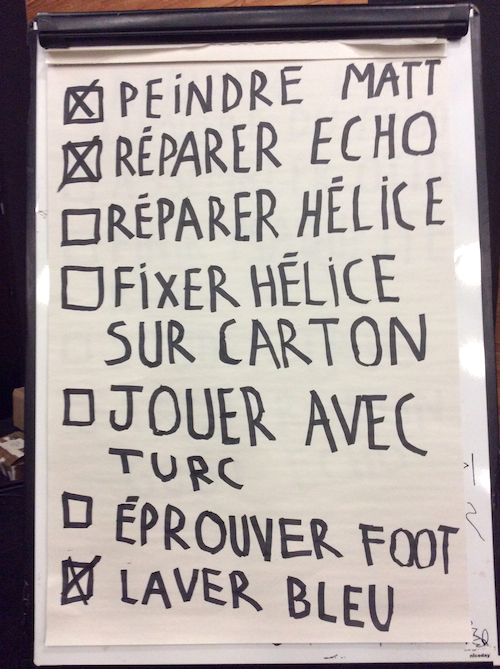 PEINDRE MATT
RÉPARER ECHO
RÉPARER HÉLICE
FIXER HÉLICE
SUR CARTON
JOUER AVEC
TURC
ÉPROUVER FOOT
LAVER BLEU